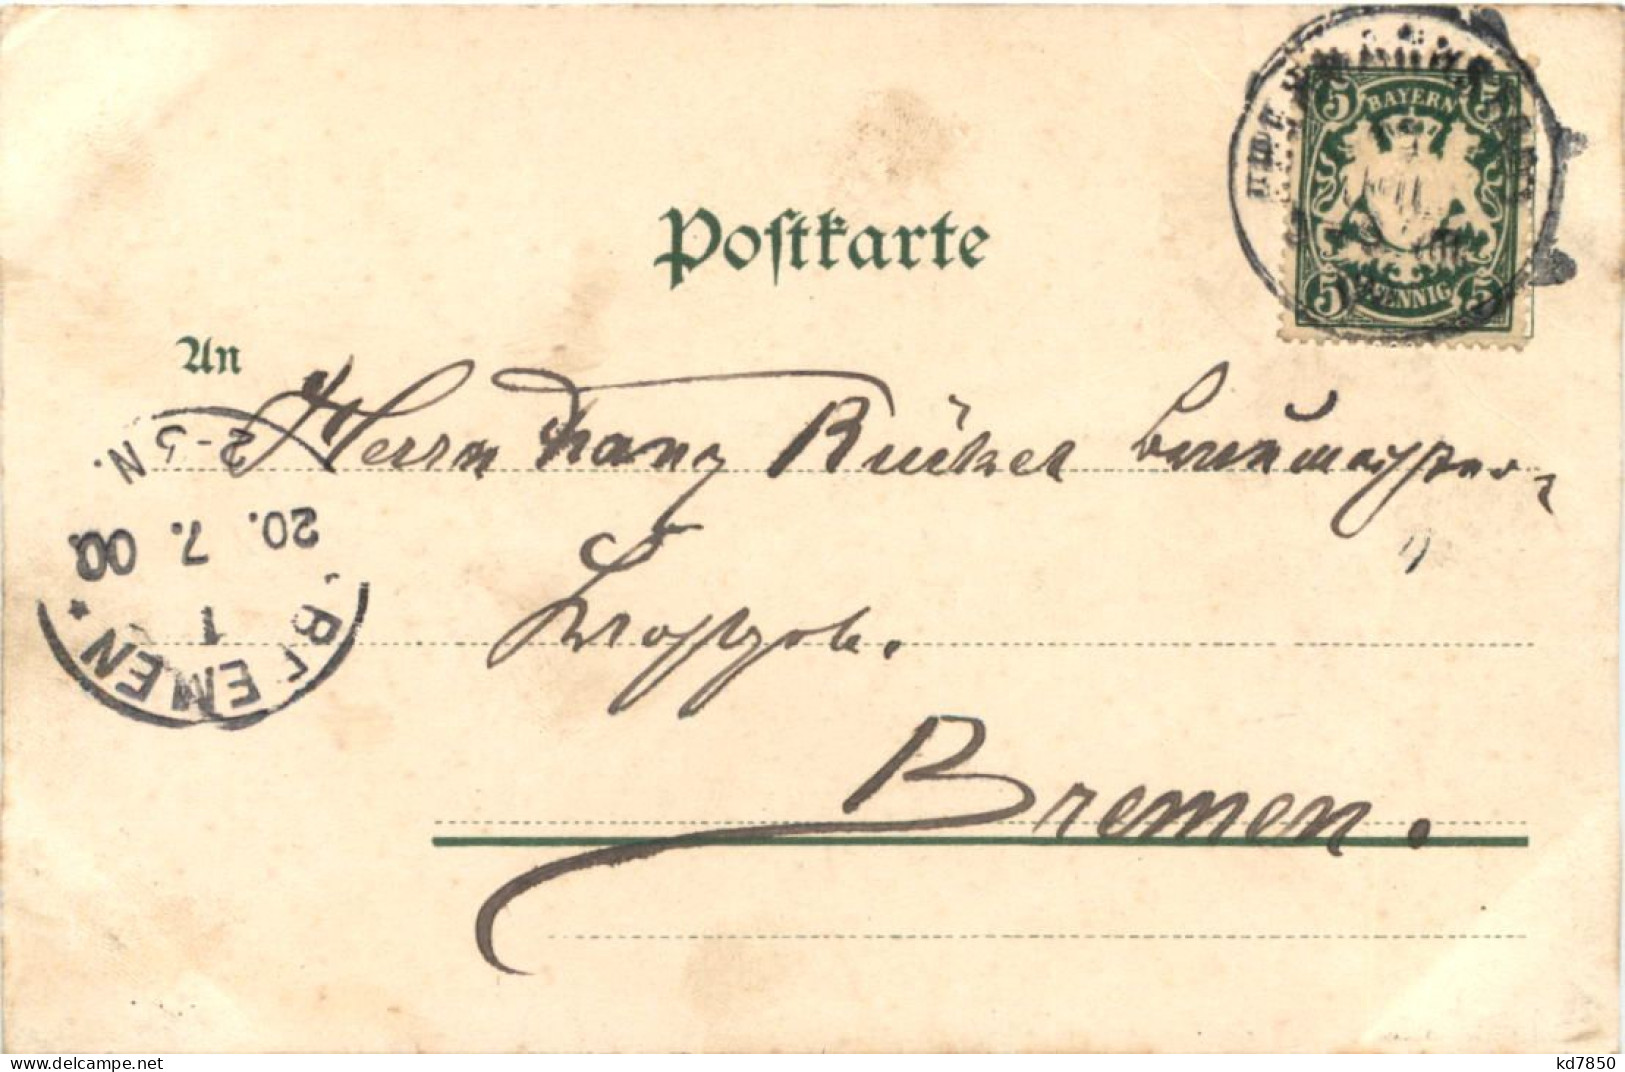 5 BAYERN 5
5 PFENNIG 5
Postkarte
An
Herrn Franz Baumeister,
Bremen.
2-5 N.
20. 7. 00.
1
* BREMEN *
delcampe.net
kd7850